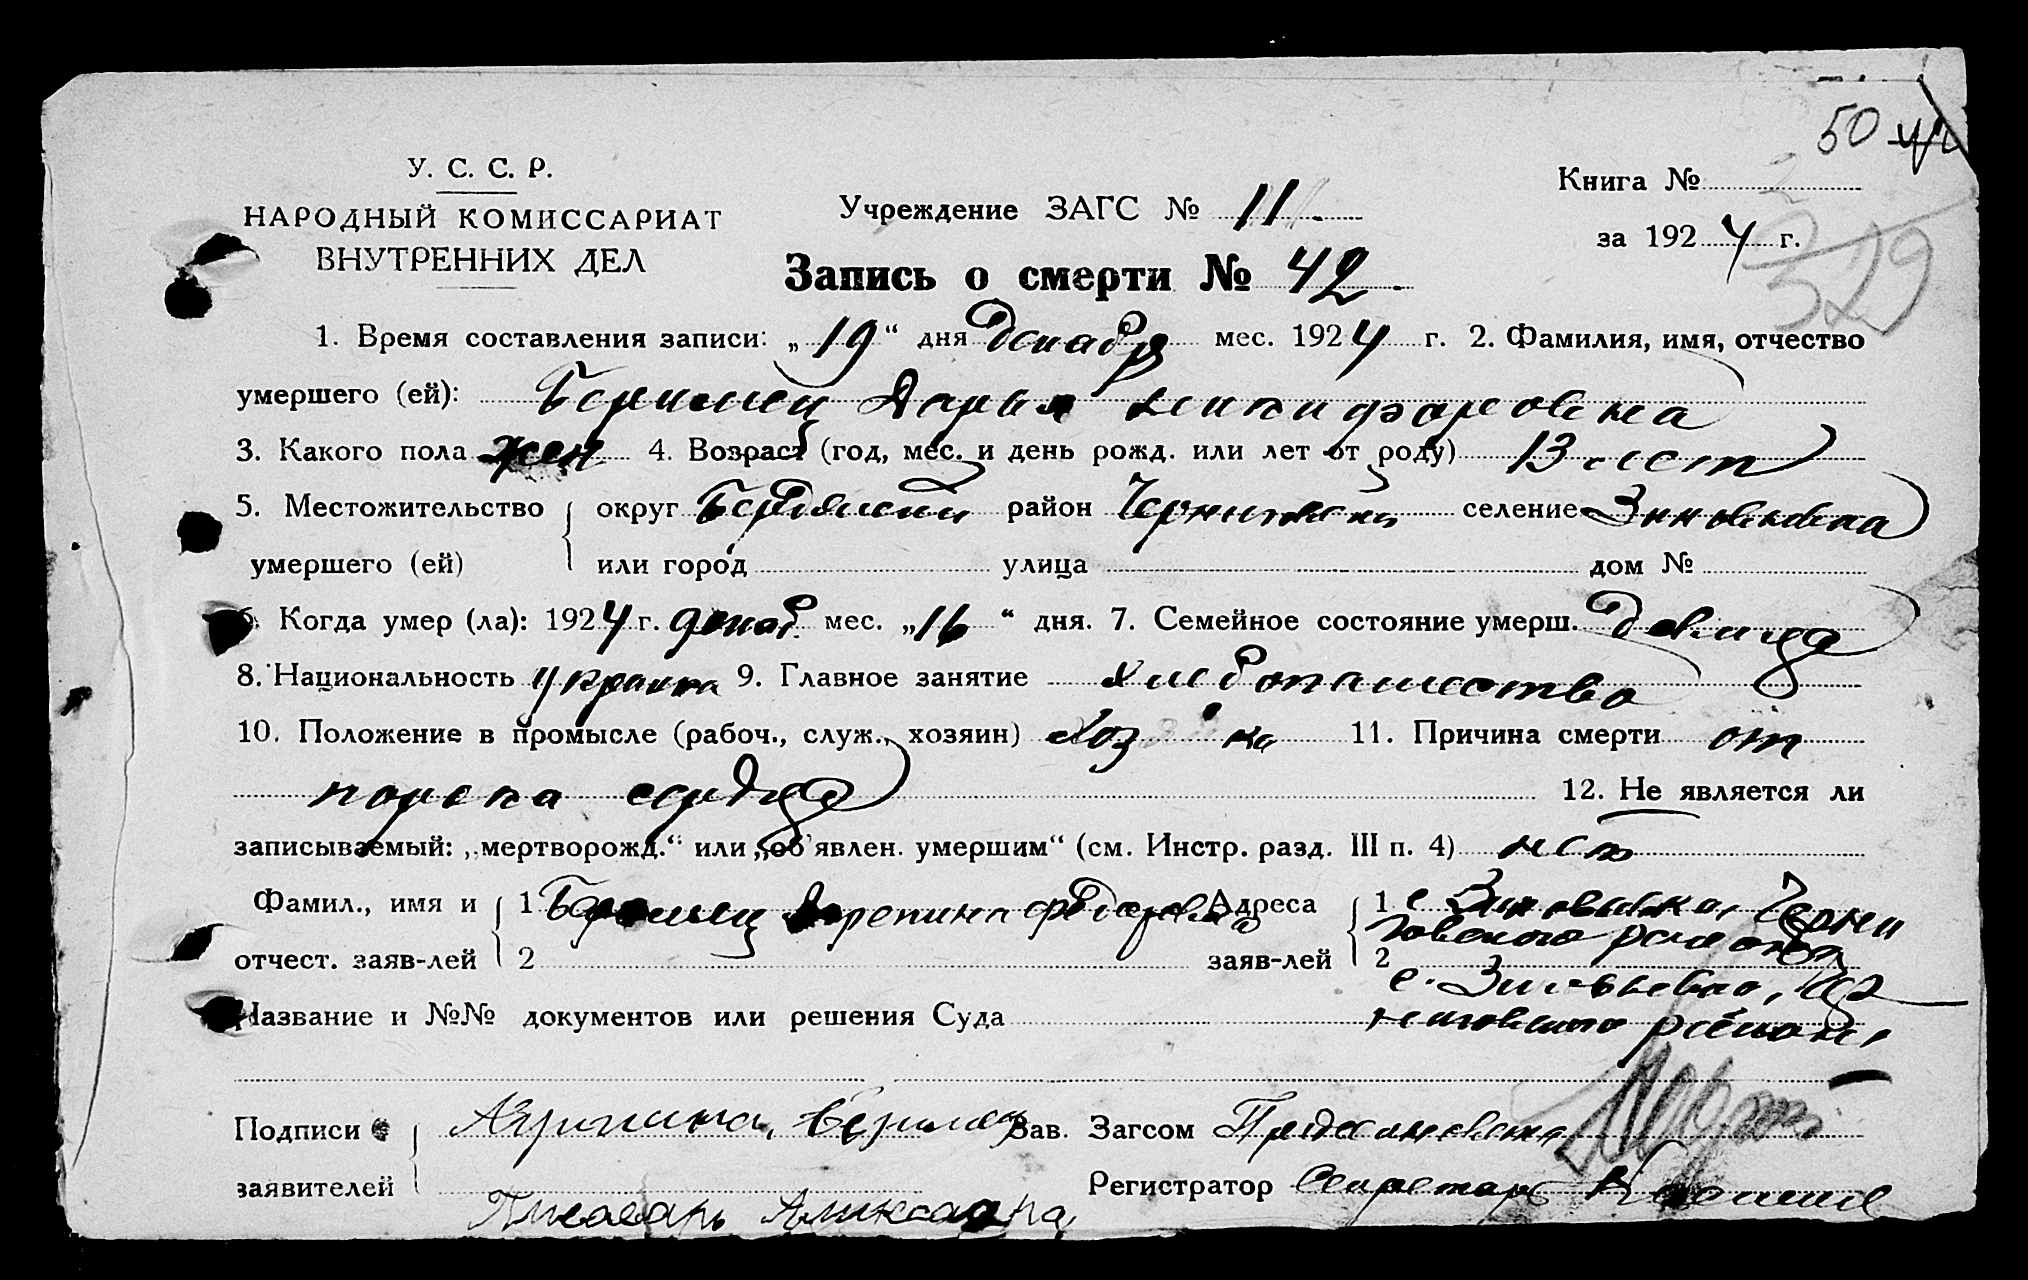 50
У. С. С. Р.
НАРОДНЫЙ КОМИССАРИАТ
ВНУТРЕННИХ ДЕЛ
Учреждение ЗАГС № 11.
Книга №
за 1924 г.
529
Запись о смерти № 42.
1. Время составления записи: „19“ дня декабря мес. 1924 г. 2. Фамилия, имя, отчество
умершего (ей): Дарья
3. Какого пола жен 4. Возраст (год, мес. и день рожд. или лет от роду) 13 лет
5. Местожительство округ Бердянский район Черниговский селение Зиновьевка
умершего (ей) или город улица дом №
6. Когда умер (ла): 1924 г. декаб. мес. „16“ дня. 7. Семейное состояние умерш. девица
8. Национальность украинка 9. Главное занятие хлебопашество
10. Положение в промысле (рабоч., служ., хозяин) 11. Причина смерти от
порока сердца 12. Не является ли
записываемый: „мертворожд.“ или „об'явлен. умершим“ (см. Инстр. разд. III п. 4) нет
Фамил., имя и 1 Адреса 1 с. Черни
говского района
отчест. заяв-лей 2 заяв-лей 2
с. Зиновьевка, Чер
ниговского района
Название и №№ документов или решения Суда
Подписи Зав. Загсом
заявителей Регистратор Секретарь